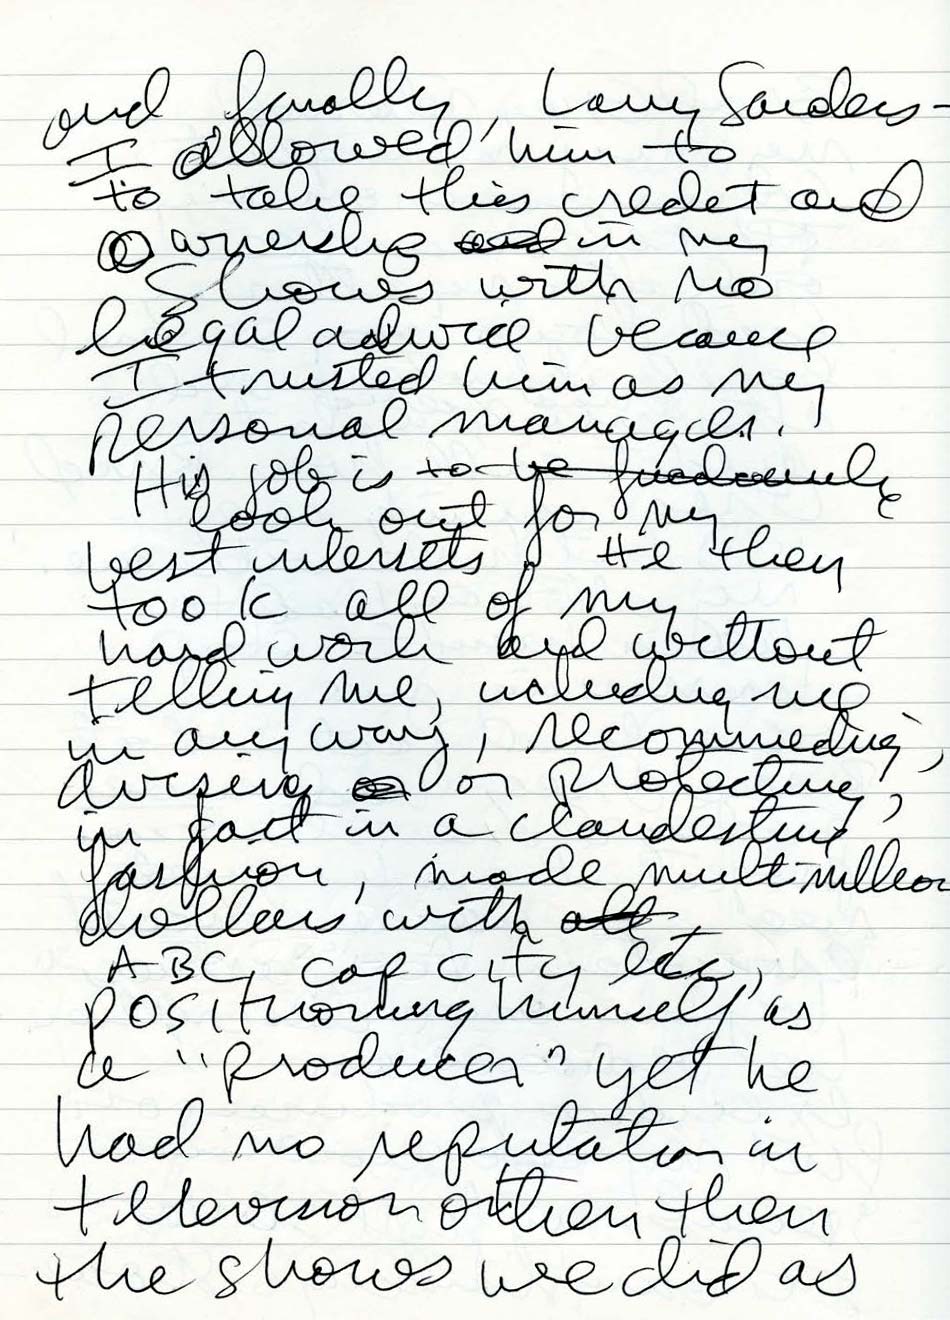 and finally, Larry Sanders -
I allowed him to
to take this credit and
ownership and in my
Shows with no
legal advice because
I trusted him as my
personal manager.
His job is to be
look out for my
best intersets. He then
took all of my
hard work and without
telling me, including me
in any way, recommeding,
divising or protecting,
in fact in a clandestine
fashion, made multi million
dollars with all
ABC, cap city etc,
positioning himself as
a "producer" yet he
had no reputation in
television other then
the shows we did as